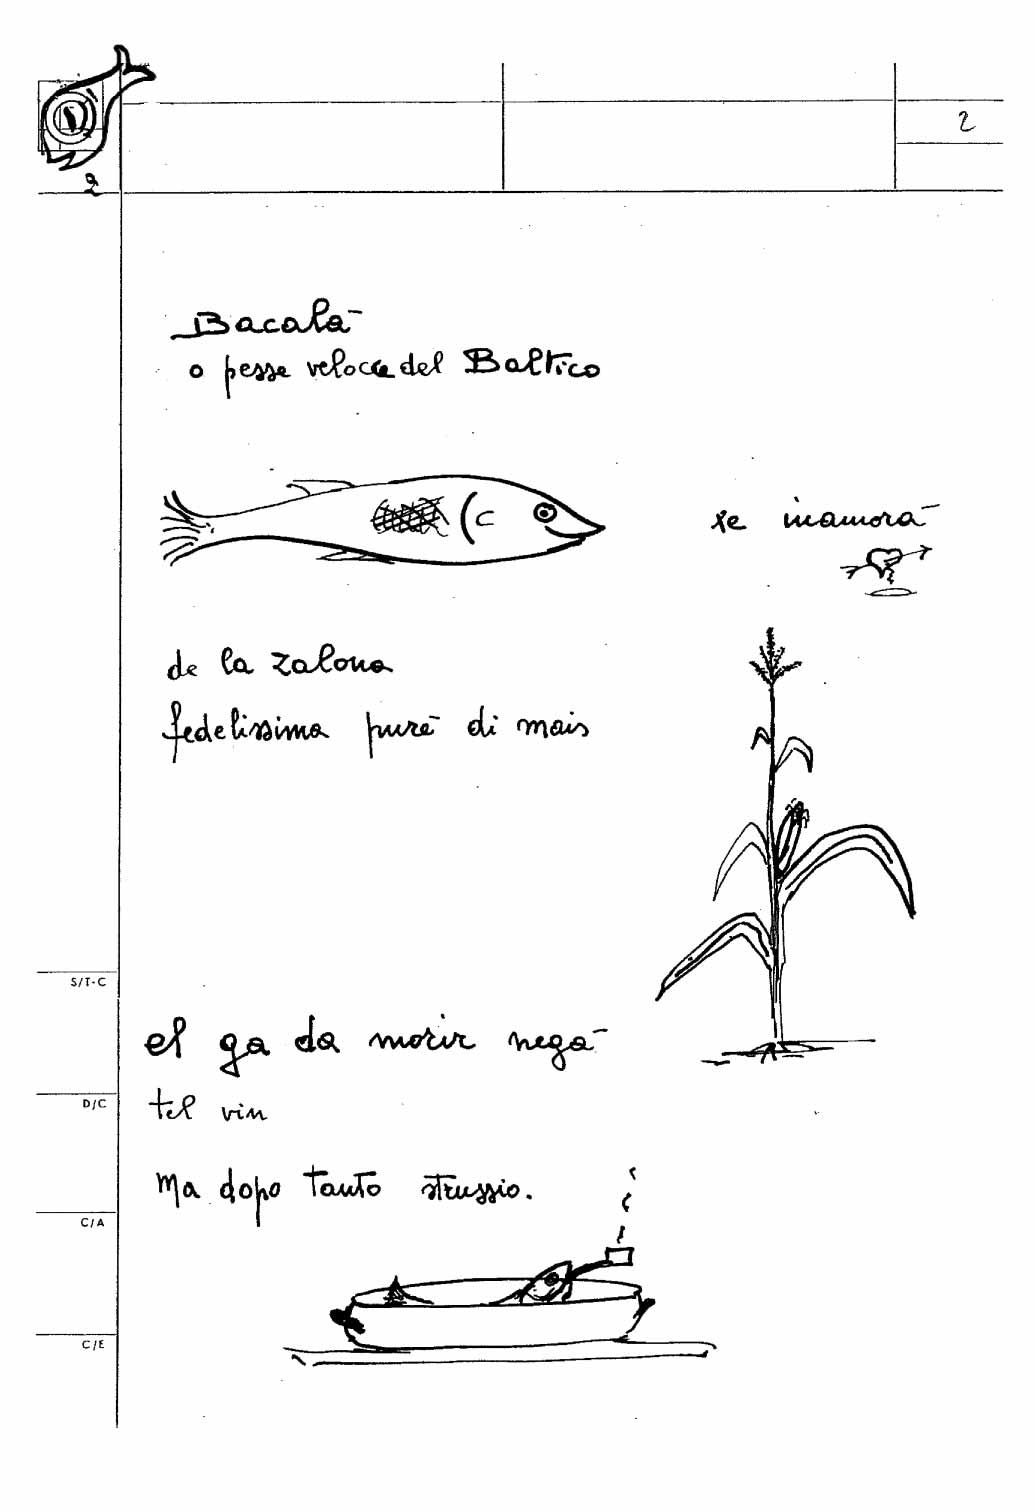 2
2
Bacalà
o pesse veloce del Baltico
xe inamorà
de la zalona
fedelissima purè di mais
S/T-C
el ga da morir negà
D/C
tel vin
Ma dopo tanto strussio.
C/A
C/E